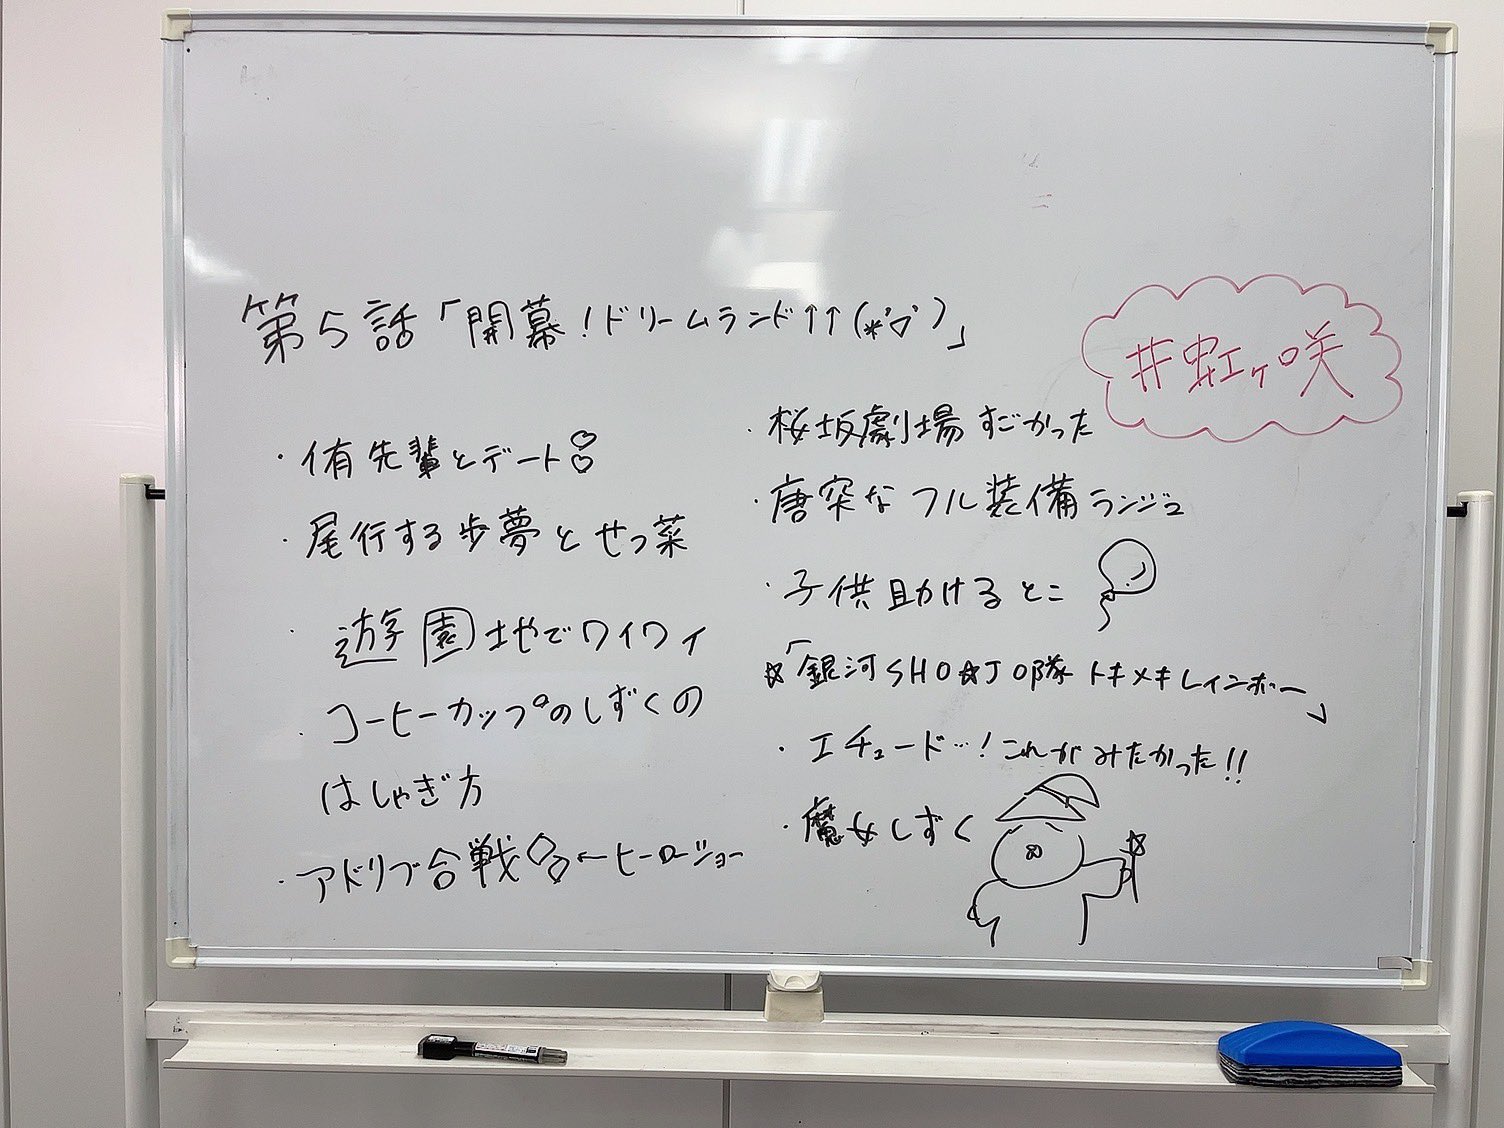 第5話「開幕！ドリームランド↑↑(*'▽')」
#虹ヶ咲
・侑先輩とデート♡♡
・尾行する歩夢とせつ菜
・遊園地でワイワイ
・コーヒーカップのしずくの
はしゃぎ方
・アドリブ合戦◇◇←ヒーローショー
・桜坂劇場すごかった
・唐突なフル装備ランジュ
・子供助けるとこ
☆「銀河SHO☆JO隊トキメキレインボー」
・エチュード…！これがみたかった!!
・魔女しずく